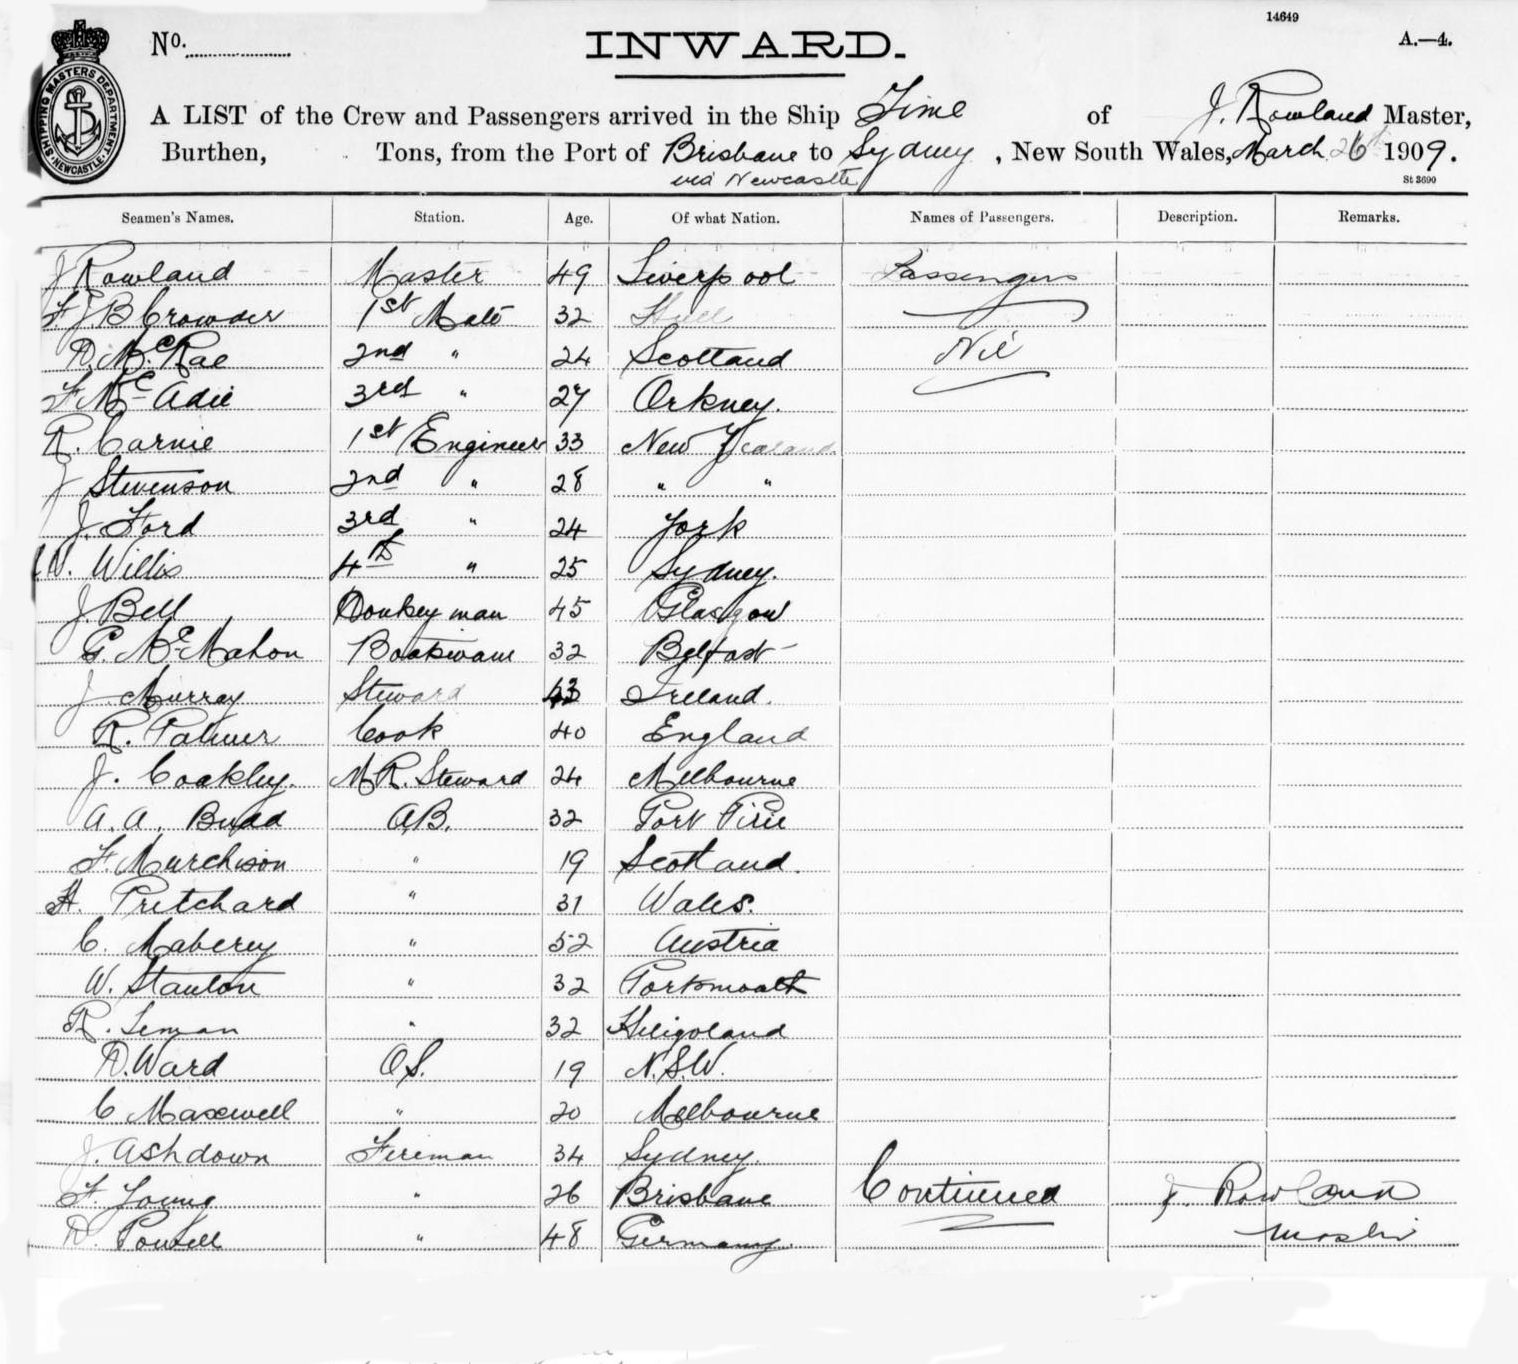 14649
No. INWARD. A.—4.
SHIPPING MASTERS DEPARTMENT · NEWCASTLE ·
A LIST of the Crew and Passengers arrived in the Ship Time of J. Rowland Master,
Burthen, Tons, from the Port of Brisbane to Sydney, New South Wales, March 26th 1909.
via Newcastle
St 3690
Seamen's Names. Station. Age. Of what Nation. Names of Passengers. Description. Remarks.
J Rowland Master 49 Liverpool Passengers
F J B Crowder 1st Mate 32 Hull
D. McRae 2nd " 24 Scotland Nil
F McAdie 3rd " 27 Orkney.
R. Carnie 1st Engineer 33 New Zealand
J Stevenson 2nd " 28 " "
J. Ford 3rd " 24 York
W. Willis 4th " 25 Sydney.
J. Bell Donkeyman 45 Glasgow
G. McMahon Boatswain 32 Belfast
J Murray Steward 43 Ireland.
R. Palmer Cook 40 England
J. Coakley. M.R. Steward 24 Melbourne
A. A. Budd A.B. 32 Port Pirie
F. Murchison " 19 Scotland.
H. Pritchard " 31 Wales.
C. Maberey " 52 Austria
W. Stanton " 32 Portsmouth
R. Leman " 32 Heligoland
D. Ward O.S. 19 N.S.W.
C Maxwell " 20 Melbourne
J. Ashdown Fireman 34 Sydney.
F. Young " 26 Brisbane Continued J. Rowland
D. Powell " 48 Germany. Master